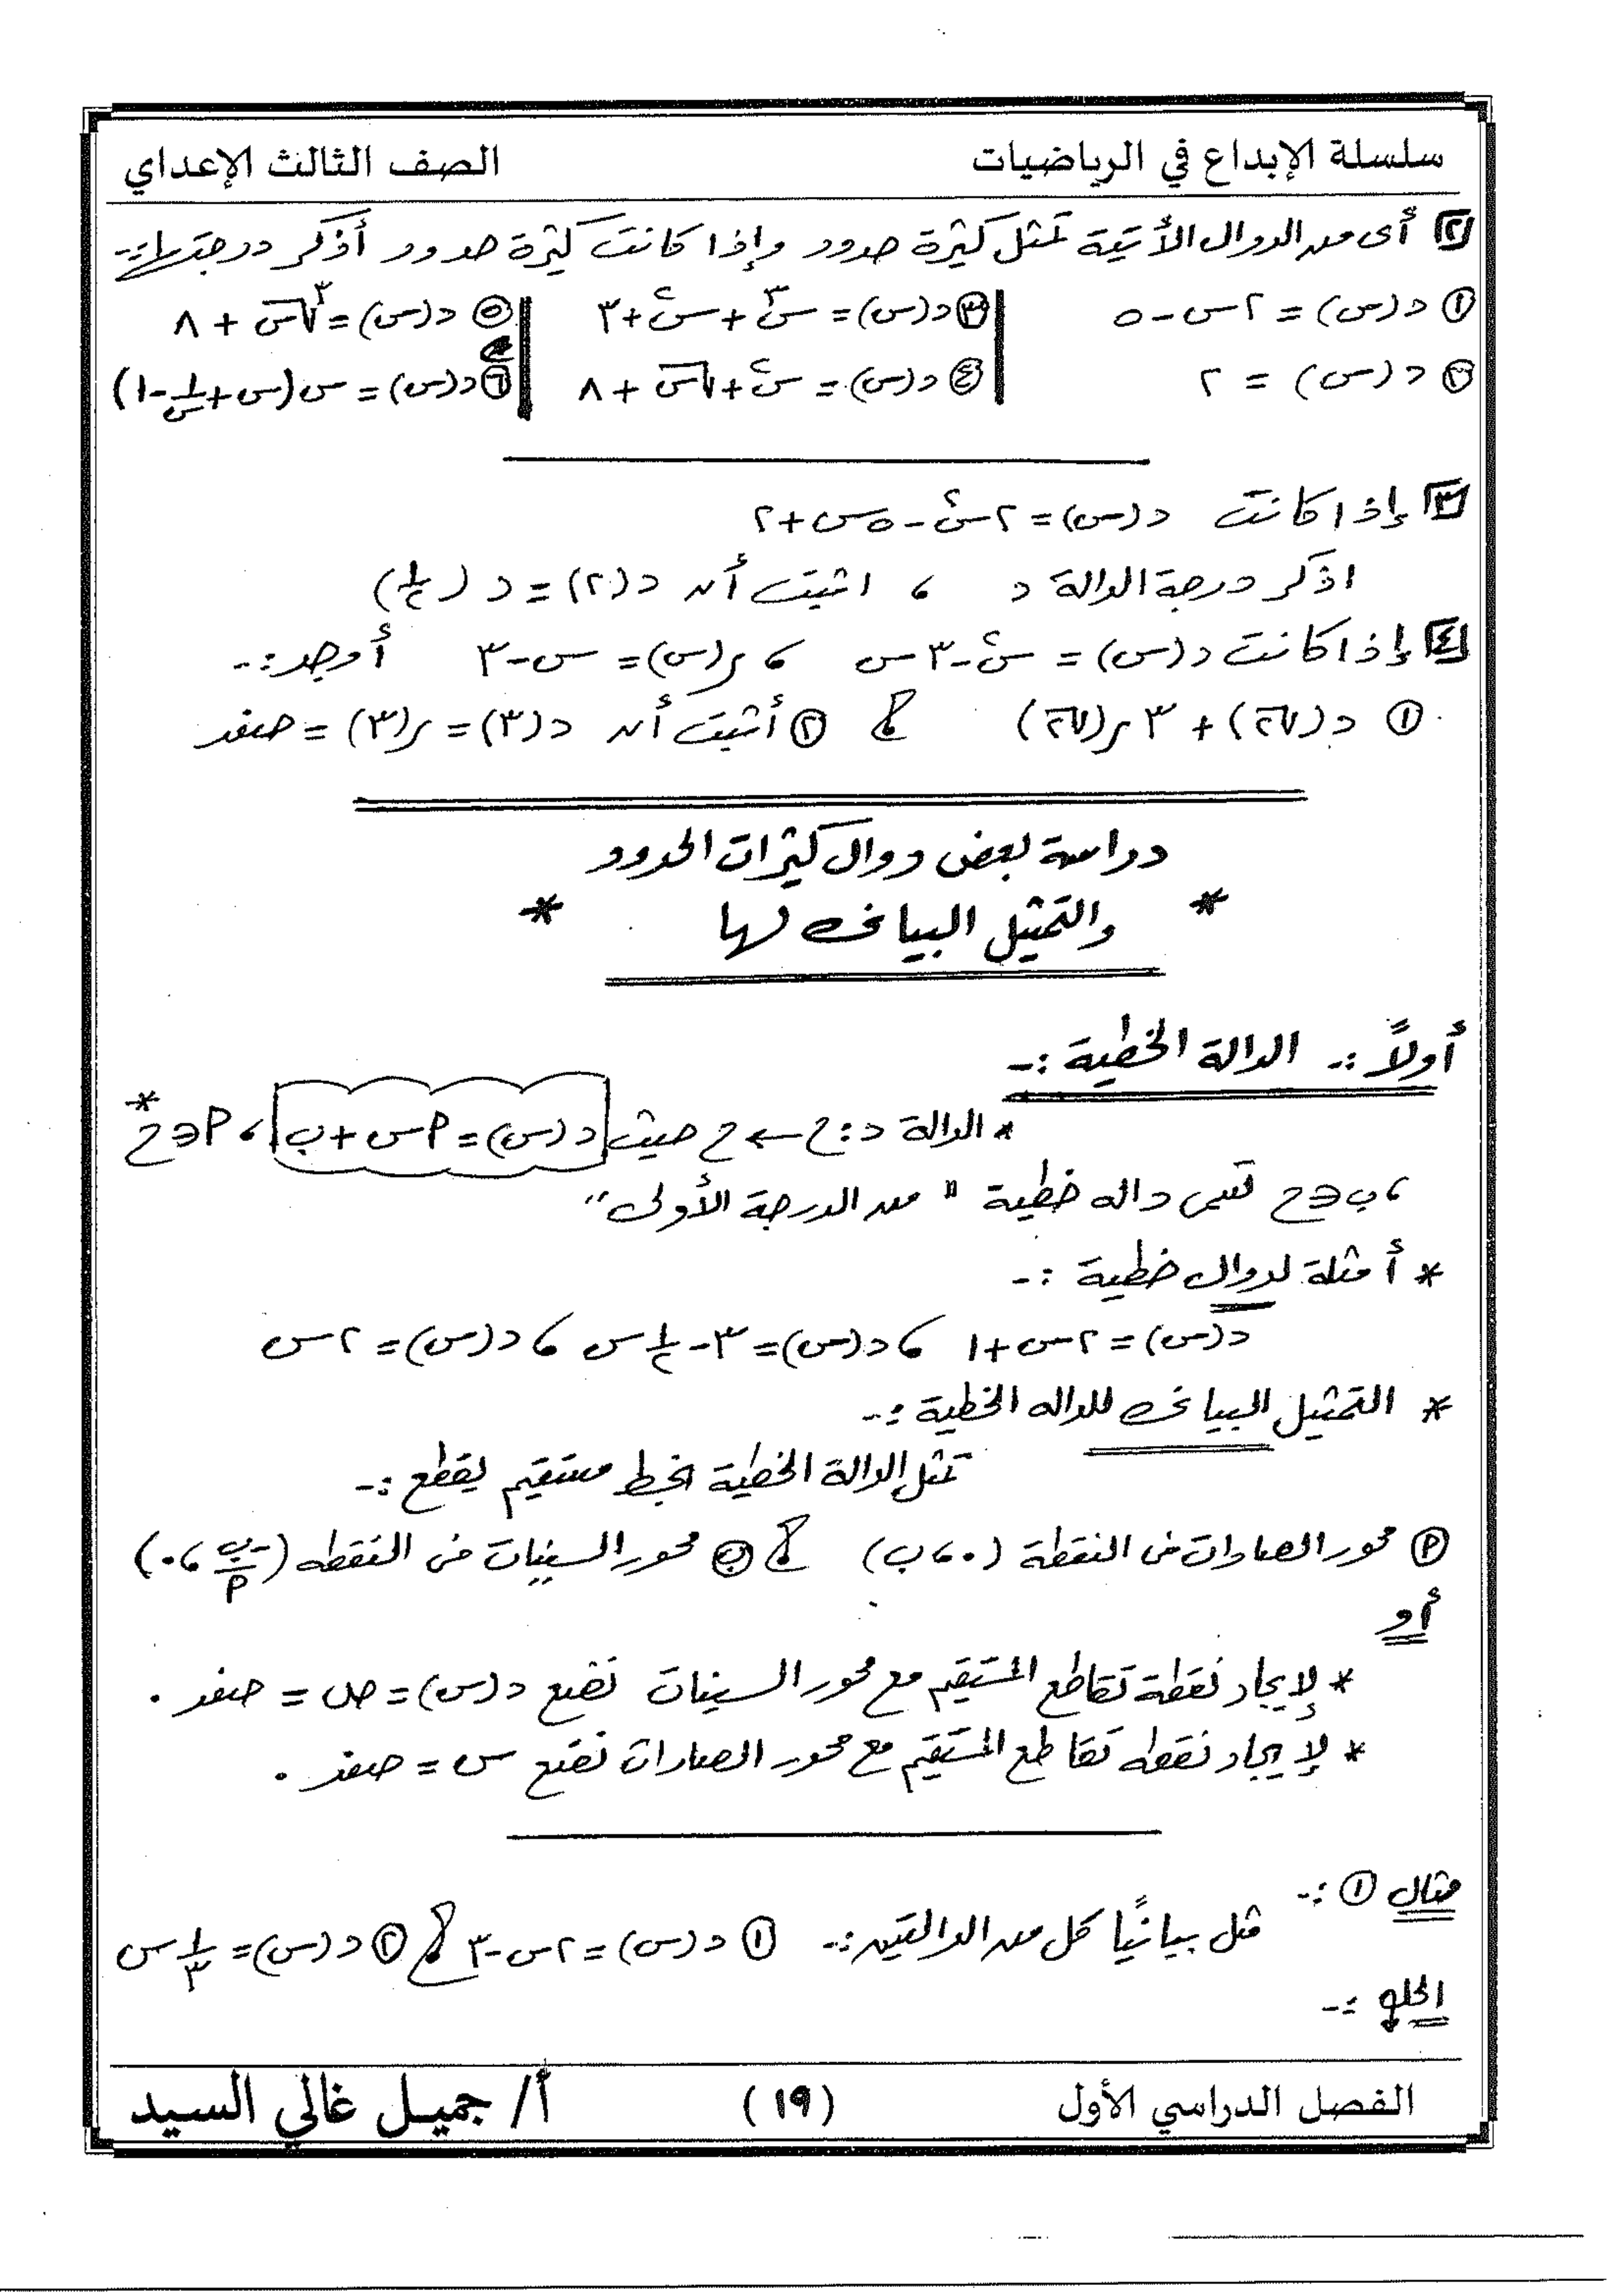 سلسلة الإبداع في الرياضيات الصف الثالث الإعداي
[٢] أى من الدوال الأتية تمثل كثيرة حدود وإذا كانت كثيرة حدود أذكر درجتها :-
① د(س) = ٢س - ٥ ③ د(س) = س³ + س² + ٣ ⑤ د(س) = ∛س + ٨
② د(س) = ٢ ④ د(س) = س² + √س + ٨ ⑥ د(س) = س(س + ١/س - ١)
[٣] إذا كانت د(س) = ٢س² - ٥س + ٢
اذكر درجة الدالة د ، اثبت أن د(٢) = د(١/٢)
[٤] إذا كانت د(س) = س² - ٣س ، ر(س) = س - ٣ أوجد :-
① د(√٢) + ٣ ر(√٢) ② أثبت أن د(٣) = ر(٣) = صفر
دراسة بعض دوال كثيرات الحدود
* والتمثيل البيانى لها *
أولاً :- الدالة الخطية :-
* الدالة د : ح ← ح حيث د(س) = أس + ب ، أ ∈ ح*
، ب ∈ ح تسمى داله خطية " من الدرجة الأولى "
* أمثلة لدوال خطية :-
د(س) = ٢س + ١ ، د(س) = ٣ - ١/٢ س ، د(س) = ٢س
* التمثيل البيانى للداله الخطية :-
تمثل الدالة الخطية بخط مستقيم يقطع :-
أ محور الصادات فى النقطة (٠ ، ب) ب محور السينيات فى النقطه (-ب/أ ، ٠)
أو
* لإيجاد نقطة تقاطع المستقيم مع محور السينات نضع د(س) = ص = صفر .
* لإيجاد نقطه تقاطع المستقيم مع محور الصادات نضع س = صفر .
مثال ① :-
مثل بيانيًا كل من الدالتين :- ① د(س) = ٢س - ٣ ② د(س) = ١/٣ س
الحل :-
الفصل الدراسي الأول (١٩) أ/ جميل غالي السيد